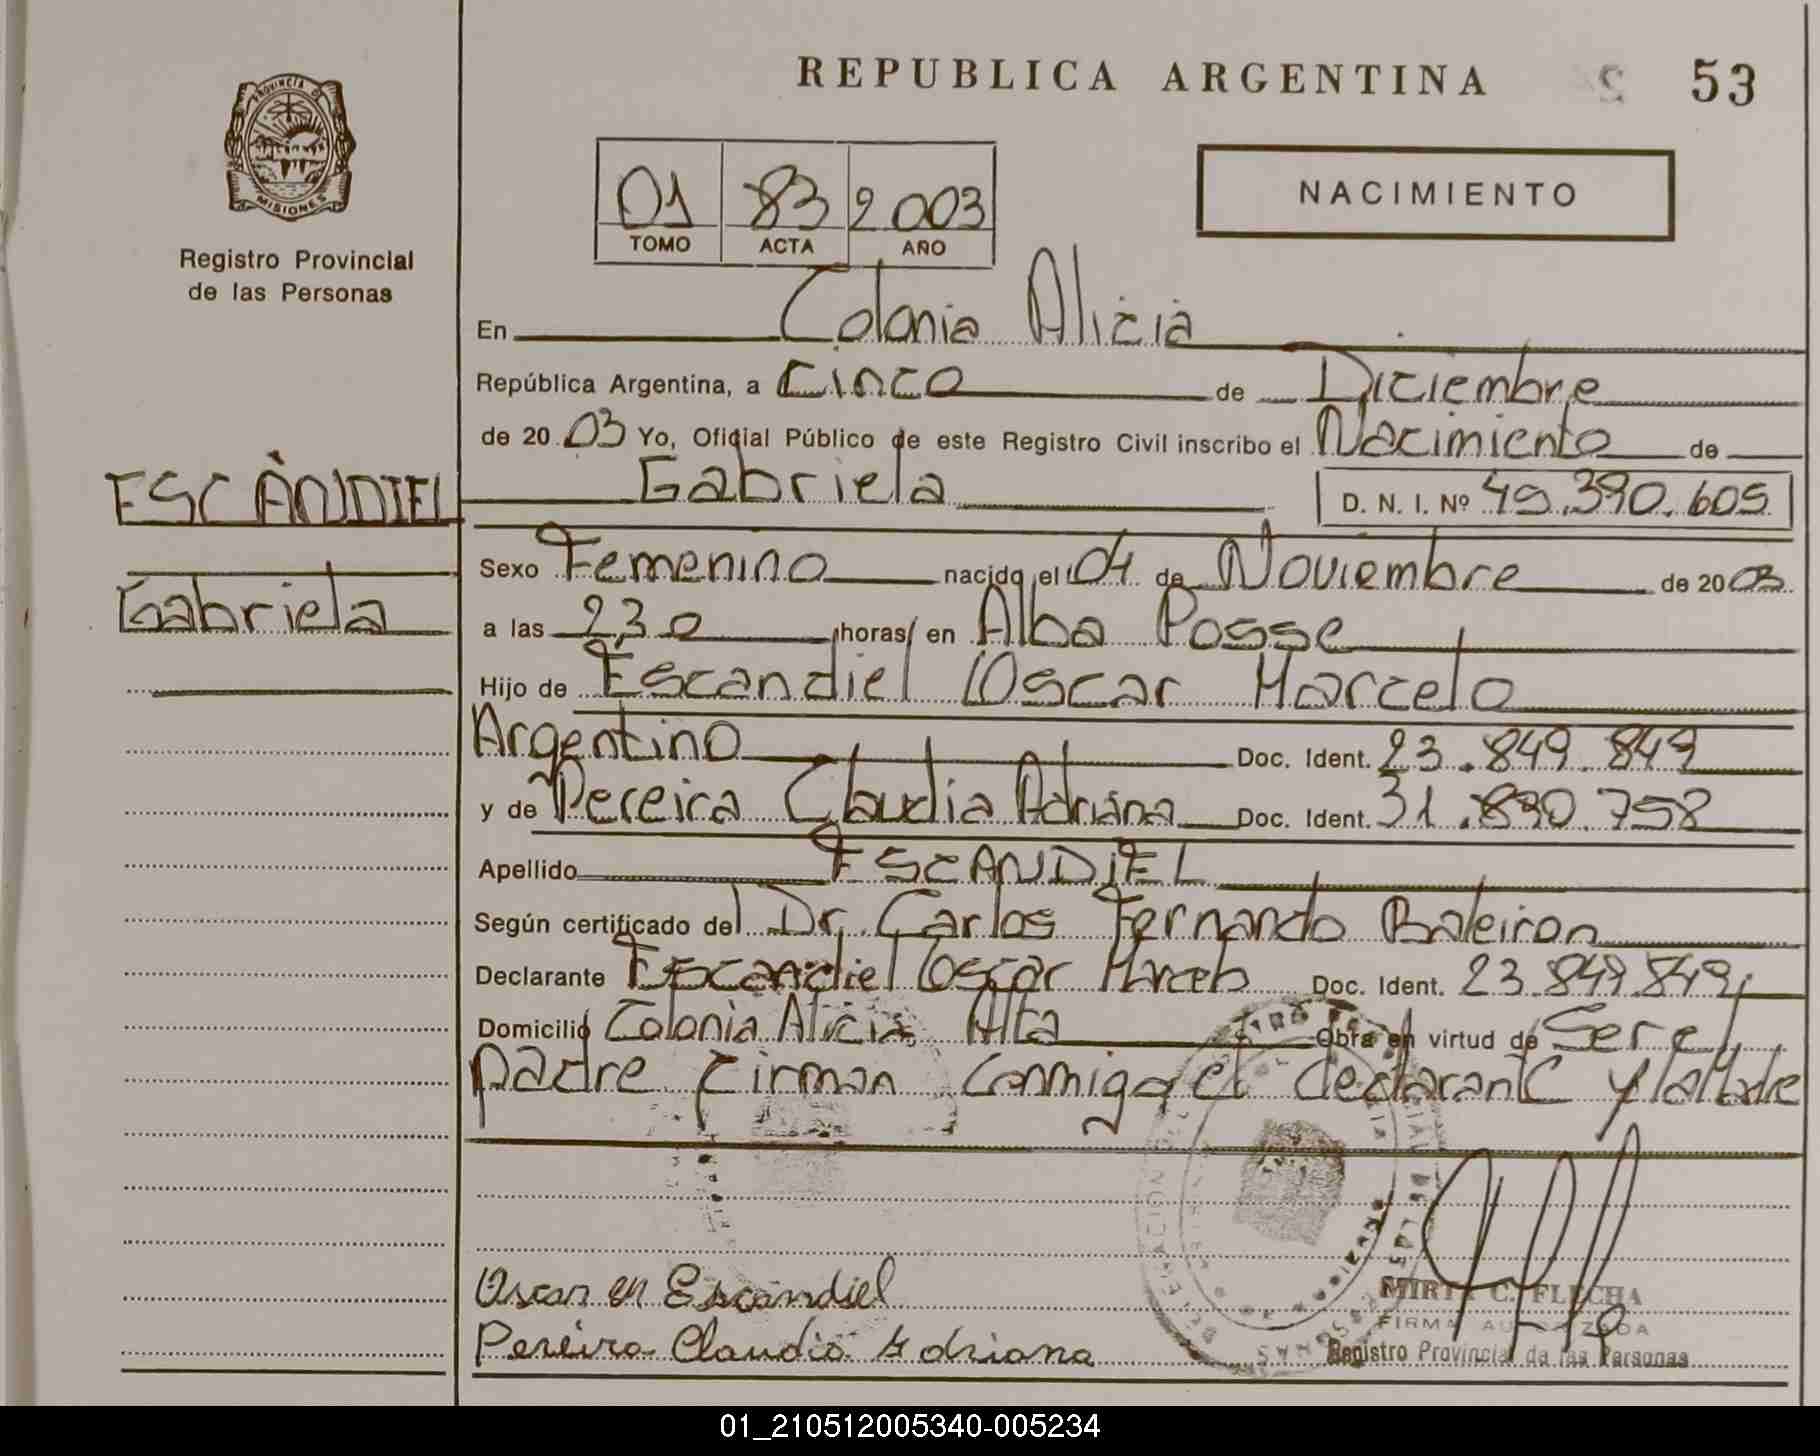 REPUBLICA ARGENTINA 53
PROVINCIA D
MISIONES
Registro Provincial
de las Personas
01 83 2003
TOMO ACTA AÑO
NACIMIENTO
En Colonia Alicia
República Argentina, a Cinco de Diciembre
de 20 03 Yo, Oficial Público de este Registro Civil inscribo el Nacimiento de
ESCÀNDIEL
Gabriela
Gabriela D. N. I. Nº 49.390.605
Sexo Femenino nacido el 04 de Noviembre de 20 03
a las 230 horas en Alba Posse
Hijo de Escandiel Oscar Marcelo
Argentino Doc. Ident. 23.849.849
y de Pereira Claudia Adriana Doc. Ident. 31.890.758
Apellido ESCANDIEL
Según certificado del Dr. Carlos Fernando Baleiron
Declarante Escandiel Oscar Marcelo Doc. Ident. 23.849.849
Domicilio Colonia Alicia Alta Obra en virtud de Ser el
padre Firman Conmigo el declarante y la Madre
Oscar m Escandiel
Pereira Claudia Adriana
MIRTA C. FLECHA
FIRMA AUTORIZADA
Registro Provincial de las Personas
01_210512005340-005234